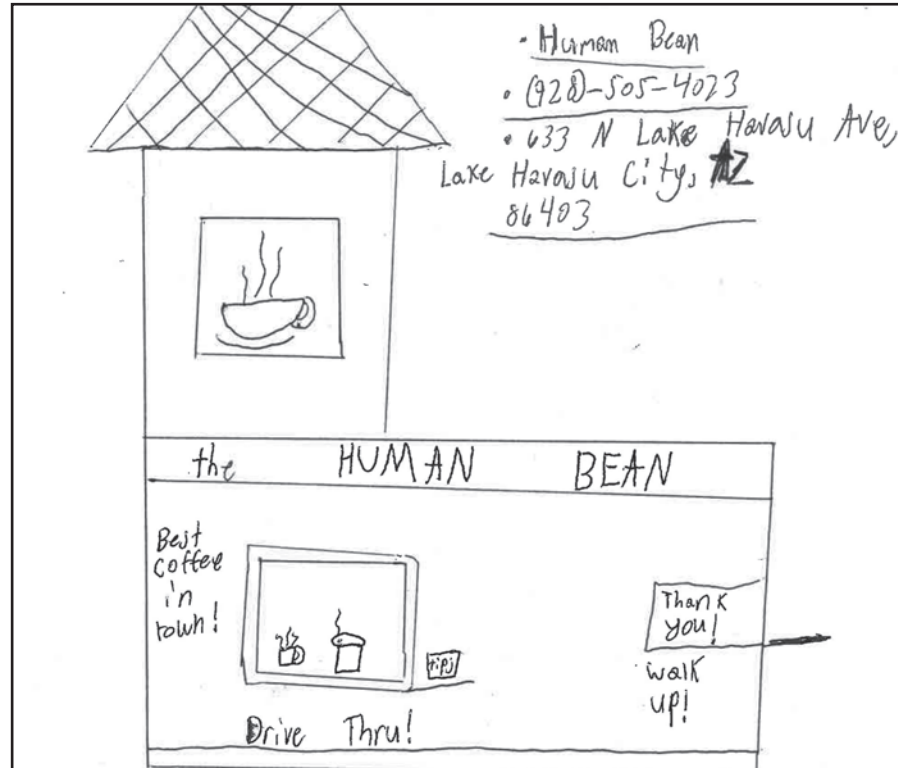 • Human Bean
• (928)-505-4023
• 633 N Lake Havasu Ave,
Lake Havasu City, AZ
86403
the HUMAN BEAN
Best
coffee
in
town!
tips
Drive Thru!
Thank
you!
walk
up!